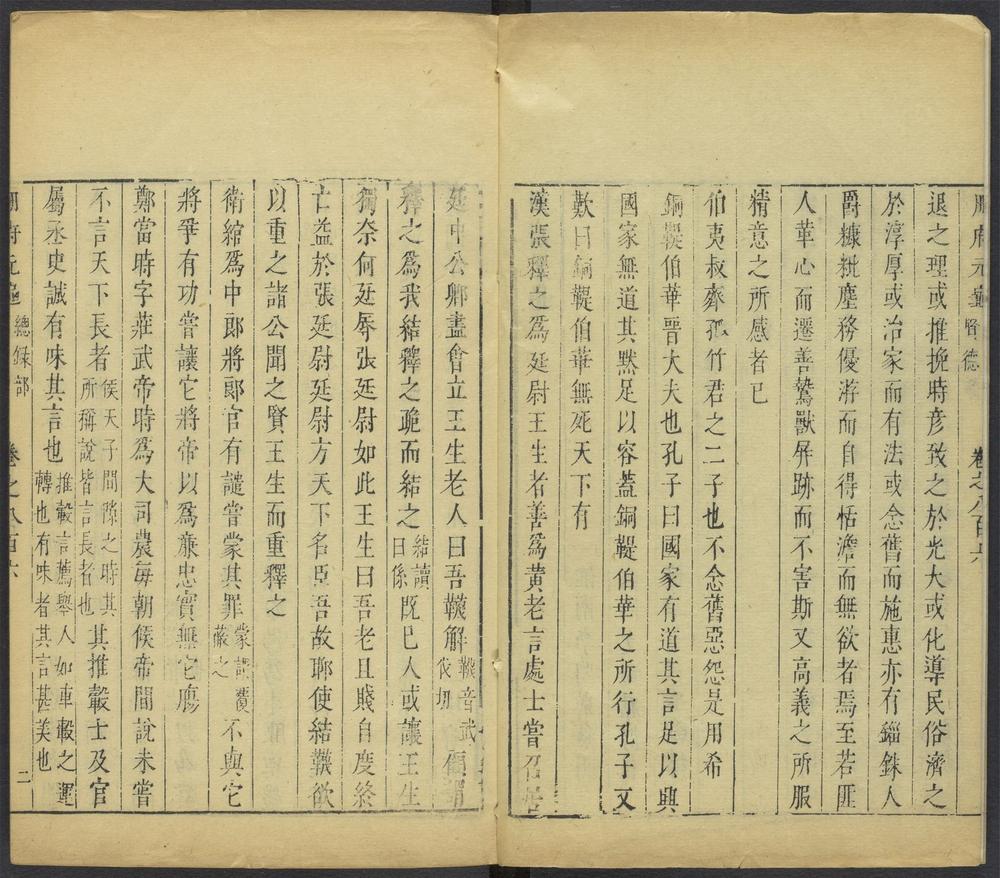 冊府元龜賢德 卷之八百六
退之理或推挽時彦致之於光大或化導民俗濟之
於淳厚或治家而有法或念舊而施惠亦有錙銖人
爵糠粃塵務優游而自得恬澹而無欲者焉至若匪
人革心而遷善鷙獸屏跡而不害斯又高義之所服
精意之所感者已
伯夷叔齊孤竹君之二子也不念舊惡怨是用希
銅鞮伯華晉大夫也孔子曰國家有道其言足以興
國家無道其默足以容蓋銅鞮伯華之所行孔子又
歎曰銅鞮伯華無死天下有
漢張釋之為廷尉王生者善為黄老言處士嘗召居
廷中公卿盡會立王生老人曰吾韈解韈音武伐切顧謂
釋之為我結釋之跪而結之結讀曰係既已人或讓王生
獨奈何廷辱張廷尉如此王生曰吾老且賤自度終
亡益於張廷尉廷尉方天下名臣吾故聊使結韈欲
以重之諸公聞之賢王生而重釋之
衛綰為中郎將郎官有譴嘗蒙其罪蒙謂覆蔽之不與它
將爭有功嘗讓它將帝以為亷忠實無它腸
鄭當時字莊武帝時為大司農毎朝候帝間說未嘗
不言天下長者候天子間隙之時其所稱說皆言長者也其推轂士及官
屬丞史誠有味其言也推轂言薦舉人如車轂之運轉也有味者其言甚美也
冊府元龜總錄部 卷之八百六 二